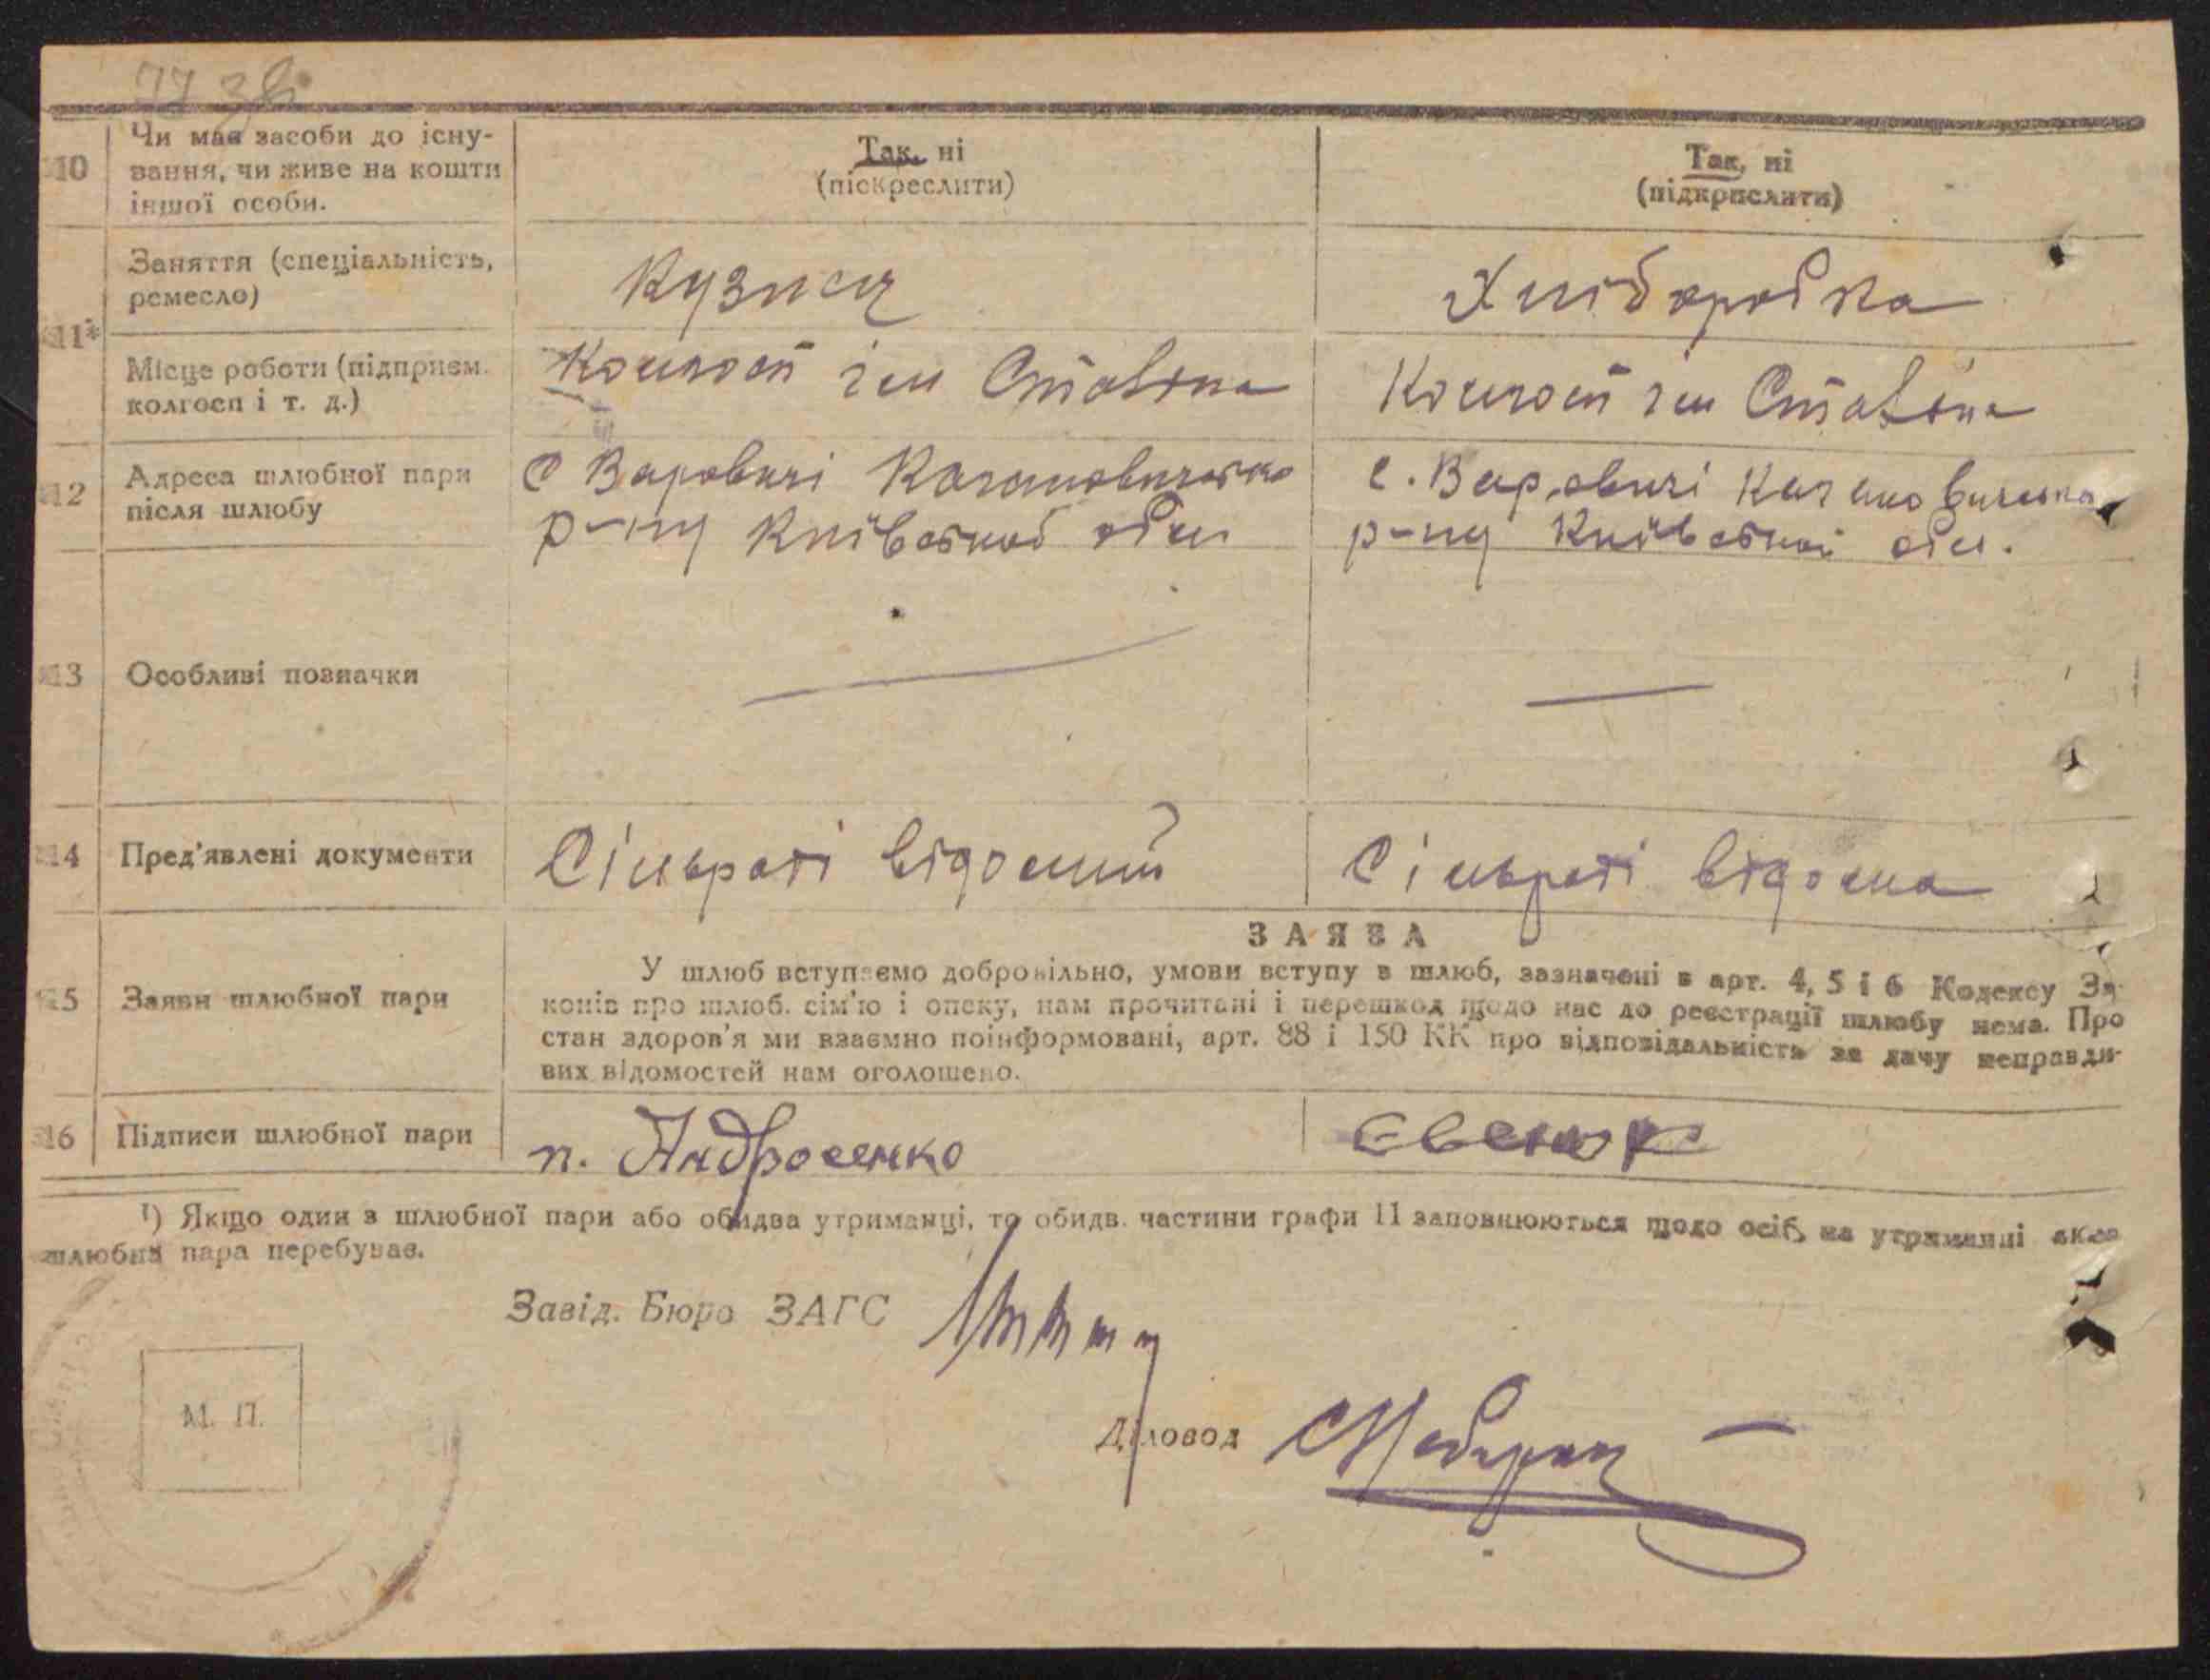 77 зв.
10
Чи має засоби до існу-
вання, чи живе на кошти
іншої особи.
Так, ні
(піскреслити)
Так, ні
(підкрислити)
11*
Заняття (спеціальність,
ремесло)
Кузнец
Хліборобка
Місце роботи (підприєм.
колгосп і т. д.)
Колгосп ім Сталіна
Колгосп ім Сталіна
12
Адреса шлюбної пари
після шлюбу
с Варовичі Кагановичсько
р-ну Київської обл
с. Варовичі Кагановичська
р-ну Київської обл.
13
Особливі позначки
14
Пред'явлені документи
Сільраді відомий
Сільраді відома
15
Заяви шлюбної пари
ЗАЯВА
У шлюб вступаємо добровільно, умови вступу в шлюб, зазначені в арт. 4, 5 і 6 Кодексу За-
конів про шлюб. сім'ю і опеку, нам прочитані і перешкод щодо нас до реєстрації шлюбу нема. Про
стан здоров'я ми взаємно поінформовані, арт. 88 і 150 КК про відповідальність за дачу неправди-
вих відомостей нам оголошено.
16
Підписи шлюбної пари
п. Андросенко
Євенок
¹) Якщо один з шлюбної пари або обидва утриманці, то обидв. частини графи 11 заповнюються щодо осіб, на утриманні яких
шлюбна пара перебуває.
Завід. Бюро ЗАГС
М. П.
Діловод